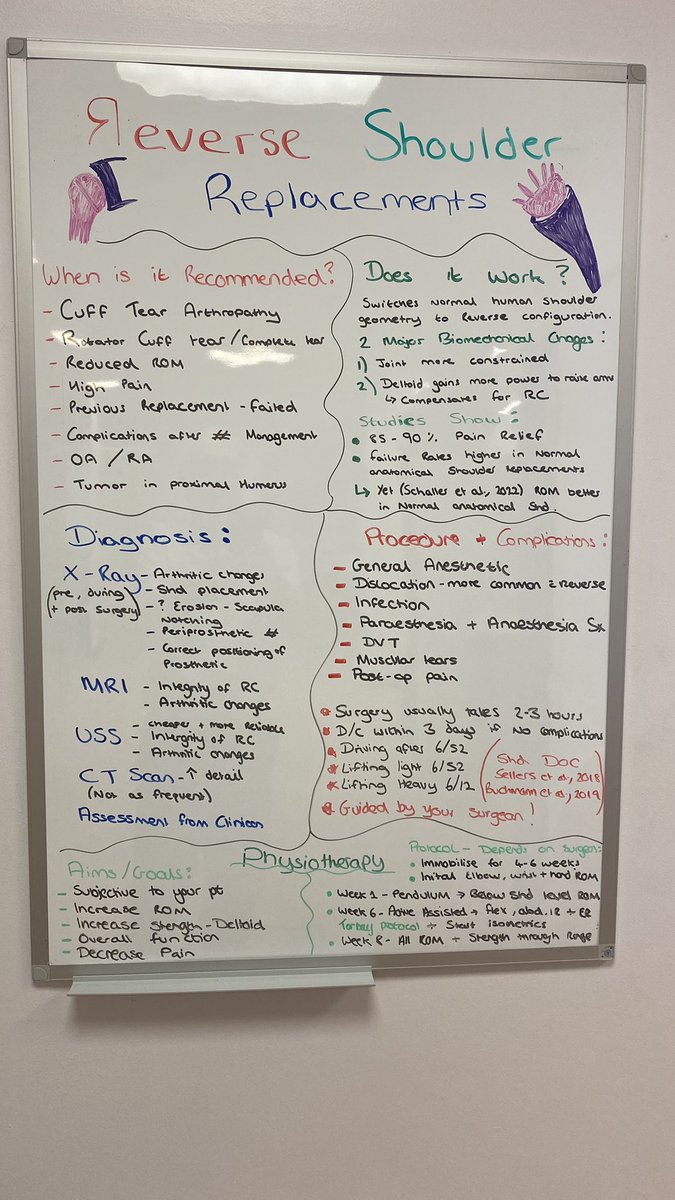 Reverse Shoulder
Replacements
When is it Recommended?
- Cuff Tear Arthropathy
- Rotator Cuff tear/Complete tear
- Reduced ROM
- High Pain
- Previous Replacement - Failed
- Complications after # Management
- OA / RA
- Tumor in proximal Humerus
Does it work?
Switches normal human shoulder
geometry to Reverse configuration.
2 Major Biomechanical Chages:
1) Joint more constrained
2) Deltoid gains more power to raise arm
↳ Compensates for RC
Studies Show:
• 85-90% Pain Relief
• Failure Rates higher in Normal
anatomical shoulder replacements
↳ Yet (Schaller et al., 2022) ROM better
in Normal anatomical Shd.
Diagnosis:
X-Ray - Arthritic changes
(pre, during + post surgery) - Shd placement
- ? Erosion - Scapula
Notching
- Periprosthetic #
- Correct positioning of
Prosthetic
MRI - Integrity of RC
- Arthritic changes
USS - cheaper + more Reliable
- Intergrity of RC
- Arthritic changes
CT Scan - ↑ detail
(Not as frequent)
Assessment from Clinican
Procedure + Complications:
- General Anesthetic
- Dislocation - more common c̄ Reverse
- Infection
- Paraesthesia + Anaesthesia Sx
- DVT
- Muscular tears
- Post-op pain
* Surgery usually takes 2-3 hours
* D/C within 3 days if no complications
* Driving after 6/52
* Lifting light 6/52
* Lifting Heavy 6/12
(Shd Doc
Sellers et al., 2018
Buchmann et al., 2019)
* Guided by your surgeon!
Physiotherapy
Aims/Goals:
- Subjective to your pt
- Increase ROM
- Increase strength - Deltoid
- Overall function
- Decrease Pain
Protocol - Depends on Surgeon:
• Immobilise for 4-6 weeks
• Initial Elbow, wrist + hand ROM
• Week 1 - Pendulum → Below Shd level ROM
• Week 6 - Active Assisted → flex, abd, IR + ER
Torbay protocol + Start isometrics
• Week 8 - All ROM + Strength through Range